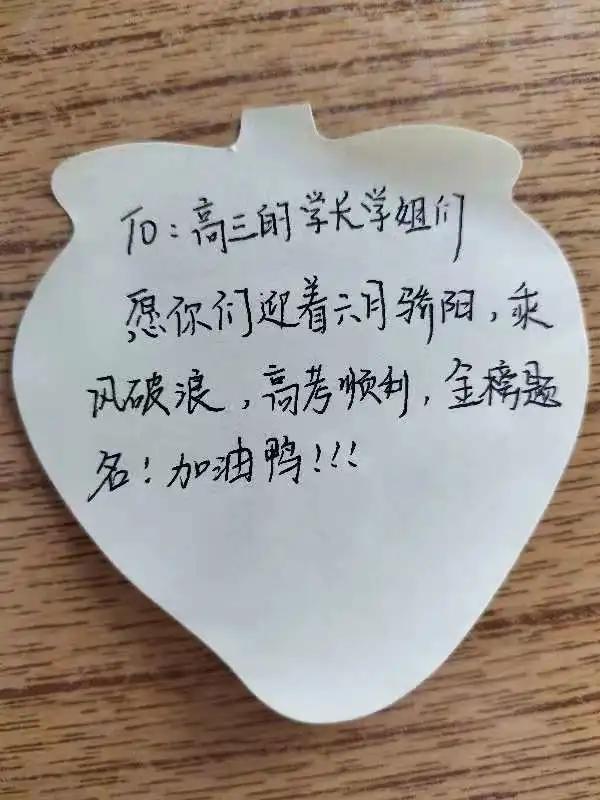 TO:高三的学长学姐们
愿你们迎着六月骄阳,乘
风破浪,高考顺利,金榜题
名!加油鸭!!!